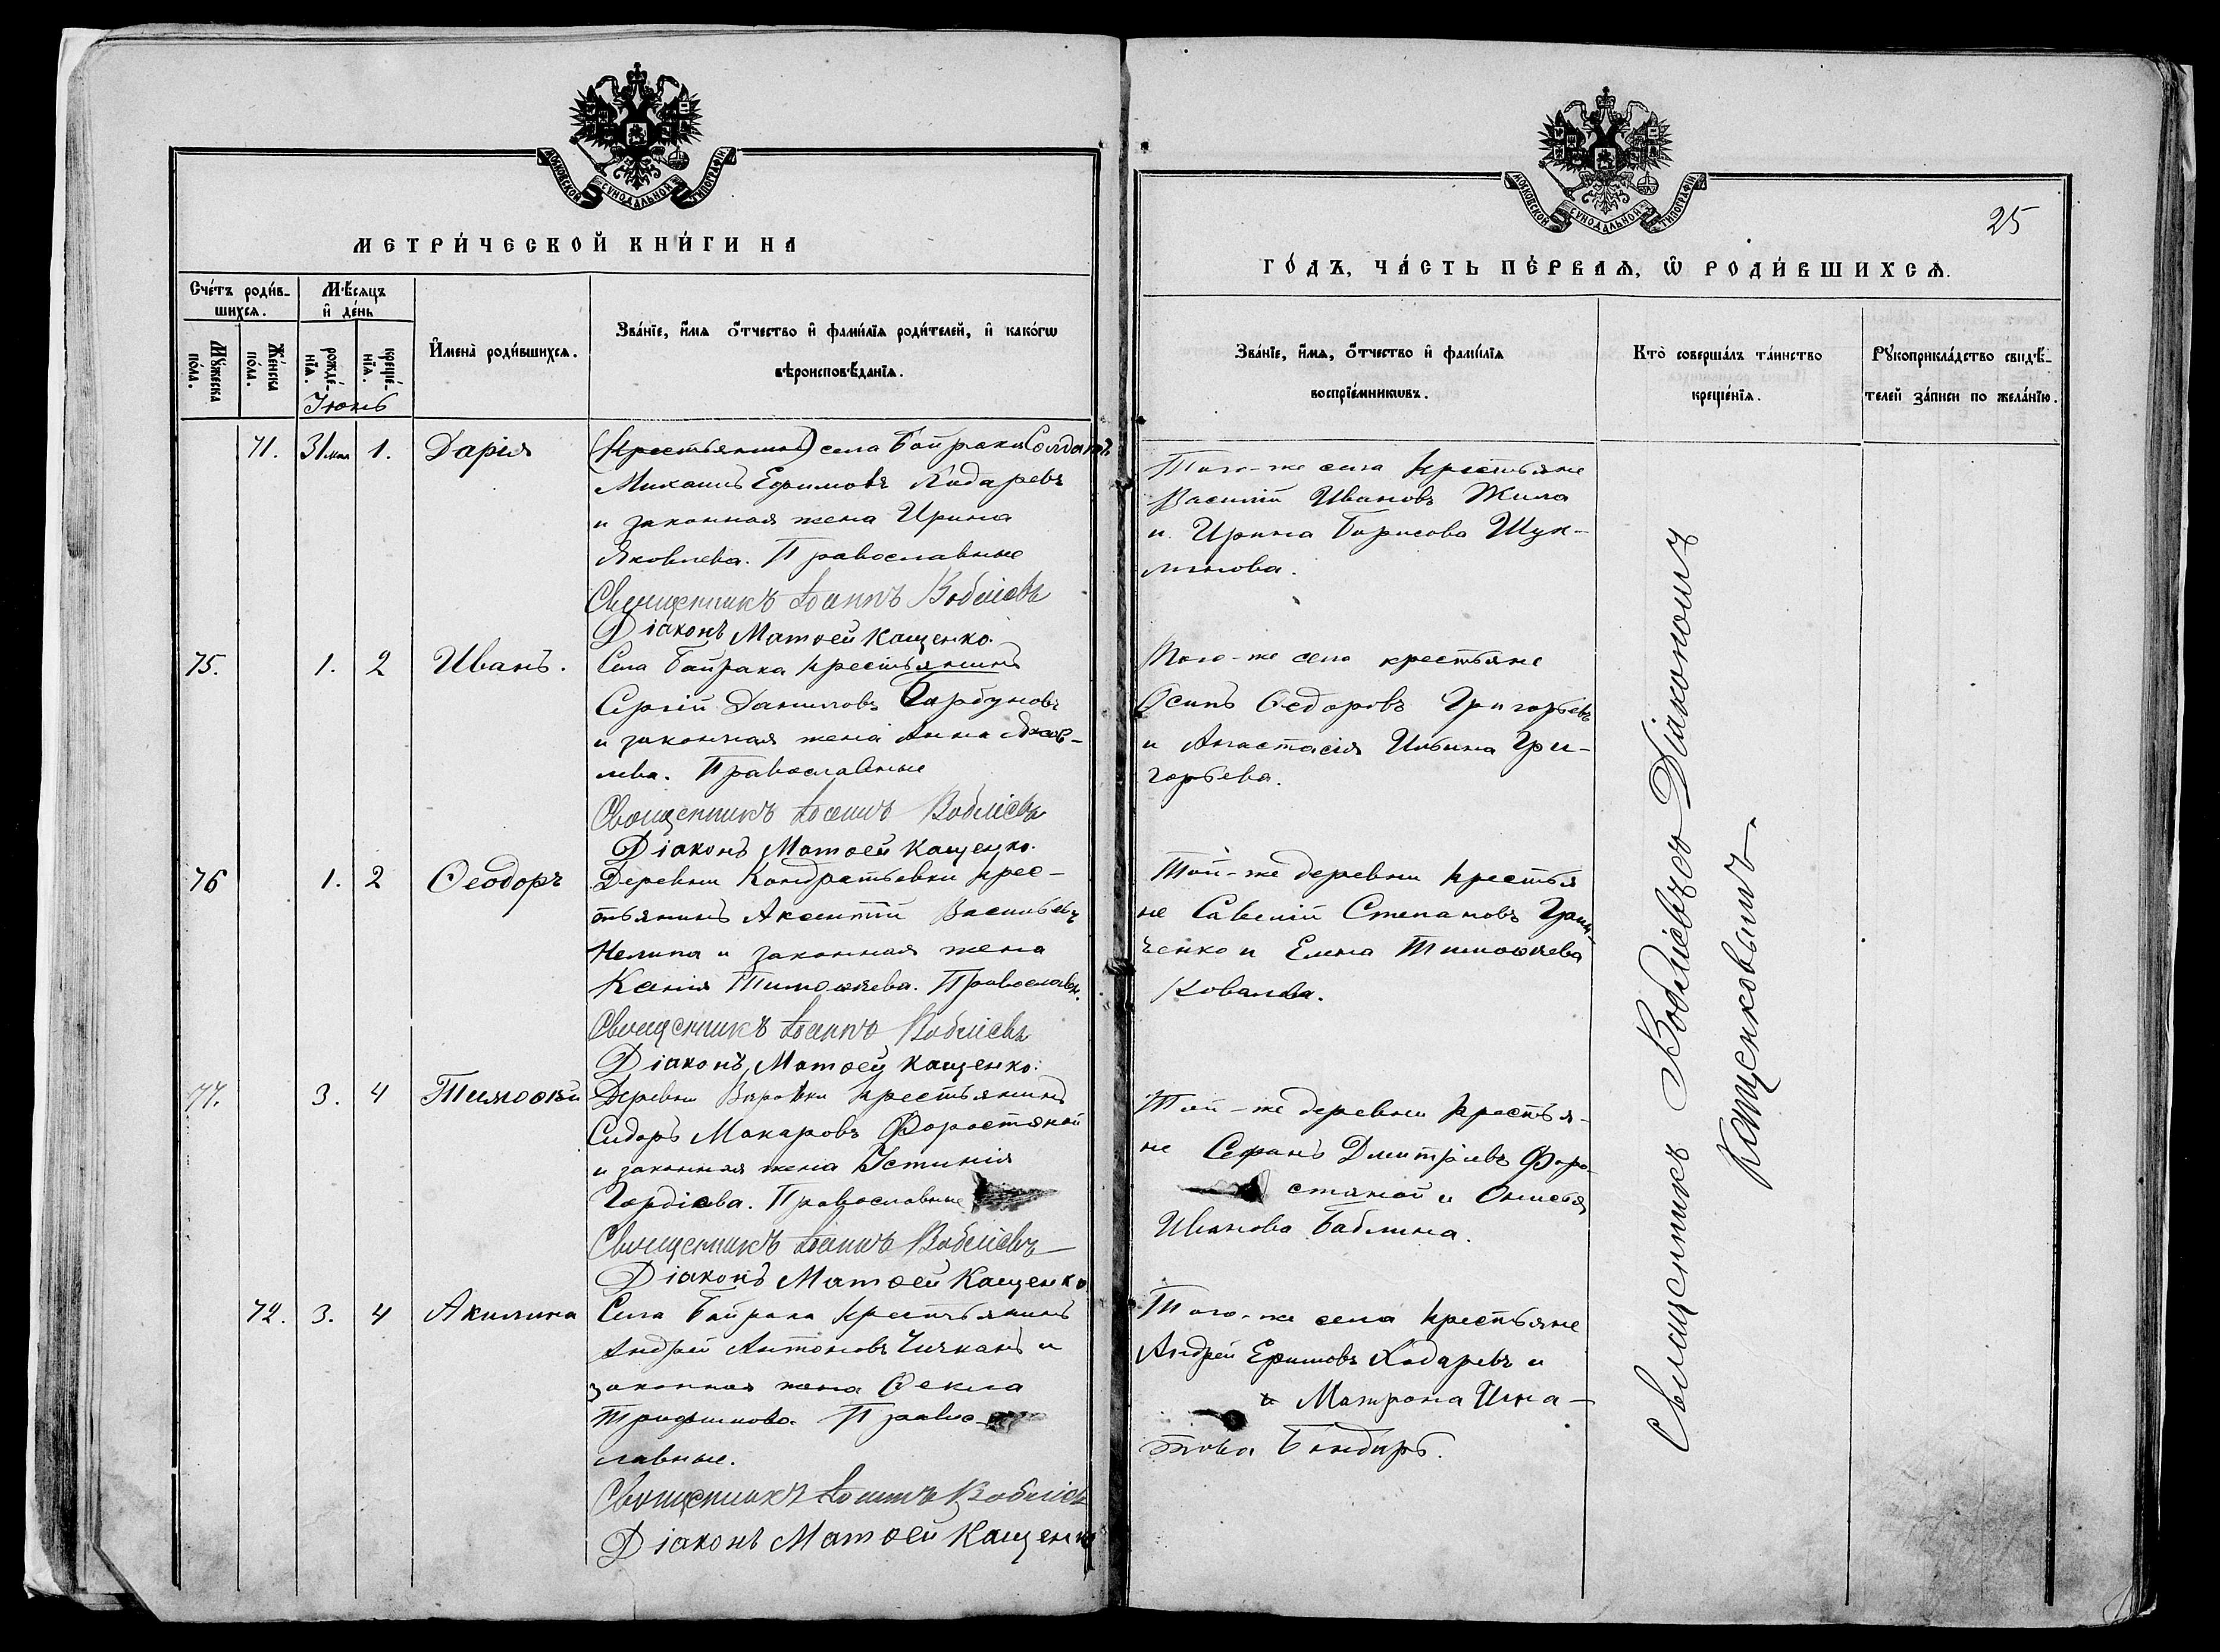 МОСКОВСКОЙ СѴНОДАЛЬНОЙ ТИПОГРАФІИ
МЕТРИ́ЧЕСКОЙ КНИ́ГИ НА
Сче́тъ роди́в-
шихсѧ.
Мѣ́сяцъ
и҆ де́нь
Мꙋ́жеска
по́ла.
Же́нска
по́ла.
рожде́-
нїѧ.
креще́-
нїѧ.
Іюнь
И҆мена̀ роди́вшихсѧ.
Зва́нїе, и҆́мѧ ѻ҆́тчество и҆ фамі́лїѧ роди́телей, и҆ како́гѡ
вѣроисповѣ́данїѧ.
71. 31 мая 1. Дарія
(Крестьянинъ) села Байрака Солдатъ
Михаилъ Ефимовъ Кодаревъ
и законная жена Ирина
Яковлева. Православные
Священникъ Іоаннъ Воблiевъ
Діаконъ Матѳей Кащенко.
75. 1. 2 Иванъ.
Села Байрака крестьянинъ
Сергій Даниловъ Горбуновъ
и законная жена Анна Яков-
лева. Православные
Священникъ Іоаннъ Воблiевъ
Діаконъ Матѳей Кащенко.
76 1. 2 Ѳеодоръ
Деревни Кондратьевки крес-
тьянинъ Аксентій Васильевъ
Нелипа и законная жена
Ксенія Тимоѳѣева. Православн.
Священникъ Іоаннъ Воблiевъ
Діаконъ, Матѳей Кащенко.
77. 3. 4 Тимоѳѣй
Деревни крестьянинъ
Сидоръ Макаровъ Форостяной
и законная жена Устинія
Гордіева. Православные
Священникъ Іоаннъ Воблiевъ
Діаконъ Матѳей Кащенко
72. 3. 4 Акилина
Села Байрака крестьянинъ
Андрей Антоновъ Чичканъ и
законная жена Ѳекла
Трифонова. Право-
славные.
Священникъ Іоаннъ Воблiевъ
Діаконъ Матѳей Кащенко
МОСКОВСКОЙ СѴНОДАЛЬНОЙ ТИПОГРАФІИ
25
ГО́ДЪ, ЧА́СТЬ ПЕ́РВАѦ, Ѽ РОДИ́ВШИХСѦ.
Зва́нїе, и҆́мѧ, ѻ҆́тчество и҆ фамі́лїѧ
воспрїе́мникѡвъ.
Кто̀ соверша́лъ та́инство
креще́нїѧ.
Рꙋкоприкла́дство свидѣ́-
телей за́писи по жела́нїю.
Того-же села крестьяне
Василій Ивановъ Жила
и Ирина Борисова Шук-
линова.
Того-же села крестьяне
Осипъ Ѳедоровъ Григорьевъ
и Анастасія Ильина Гри-
горьева.
Той-же деревни крестья
не Савелій Степановъ
ченко и Елена Тимоѳѣева
Ковалева.
Той-же деревни крестья-
не Стефанъ Дмитріевъ Форо-
стяной и Онисья
Иванова Баблина.
Того-же села крестьяне
Андрей Ефимовъ Кодаревъ и
и Матрона Игна-
това Бондарь.
Священникъ Воблiевъ съ Діакономъ
Кащенковымъ.